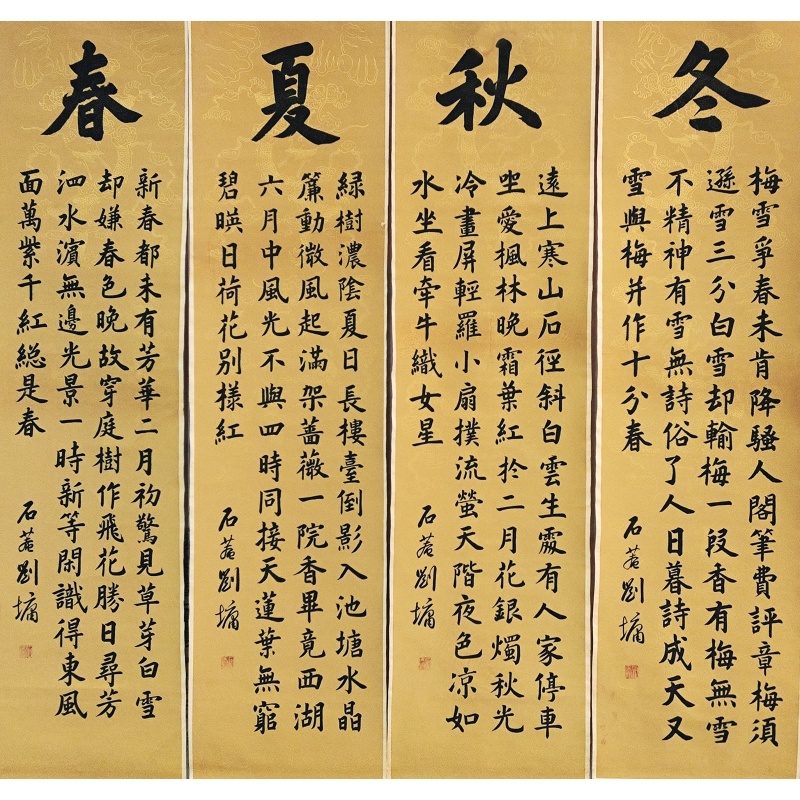 春
新春都未有芳華二月初驚見草芽白雪
却嫌春色晚故穿庭樹作飛花勝日尋芳
泗水濱無邊光景一時新等閑識得東風
面萬紫千紅総是春
石菴劉墉
夏
綠樹濃陰夏日長樓臺倒影入池塘水晶
簾動微風起滿架薔薇一院香畢竟西湖
六月中風光不與四時同接天蓮葉無窮
碧暎日荷花別樣紅
石菴劉墉
秋
遠上寒山石徑斜白雲生處有人家停車
坐愛楓林晚霜葉紅於二月花銀燭秋光
冷畫屏輕羅小扇撲流螢天階夜色凉如
水坐看牽牛織女星
石菴劉墉
冬
梅雪爭春未肯降騷人閣筆費評章梅須
遜雪三分白雪却輸梅一段香有梅無雪
不精神有雪無詩俗了人日暮詩成天又
雪與梅并作十分春
石菴劉墉